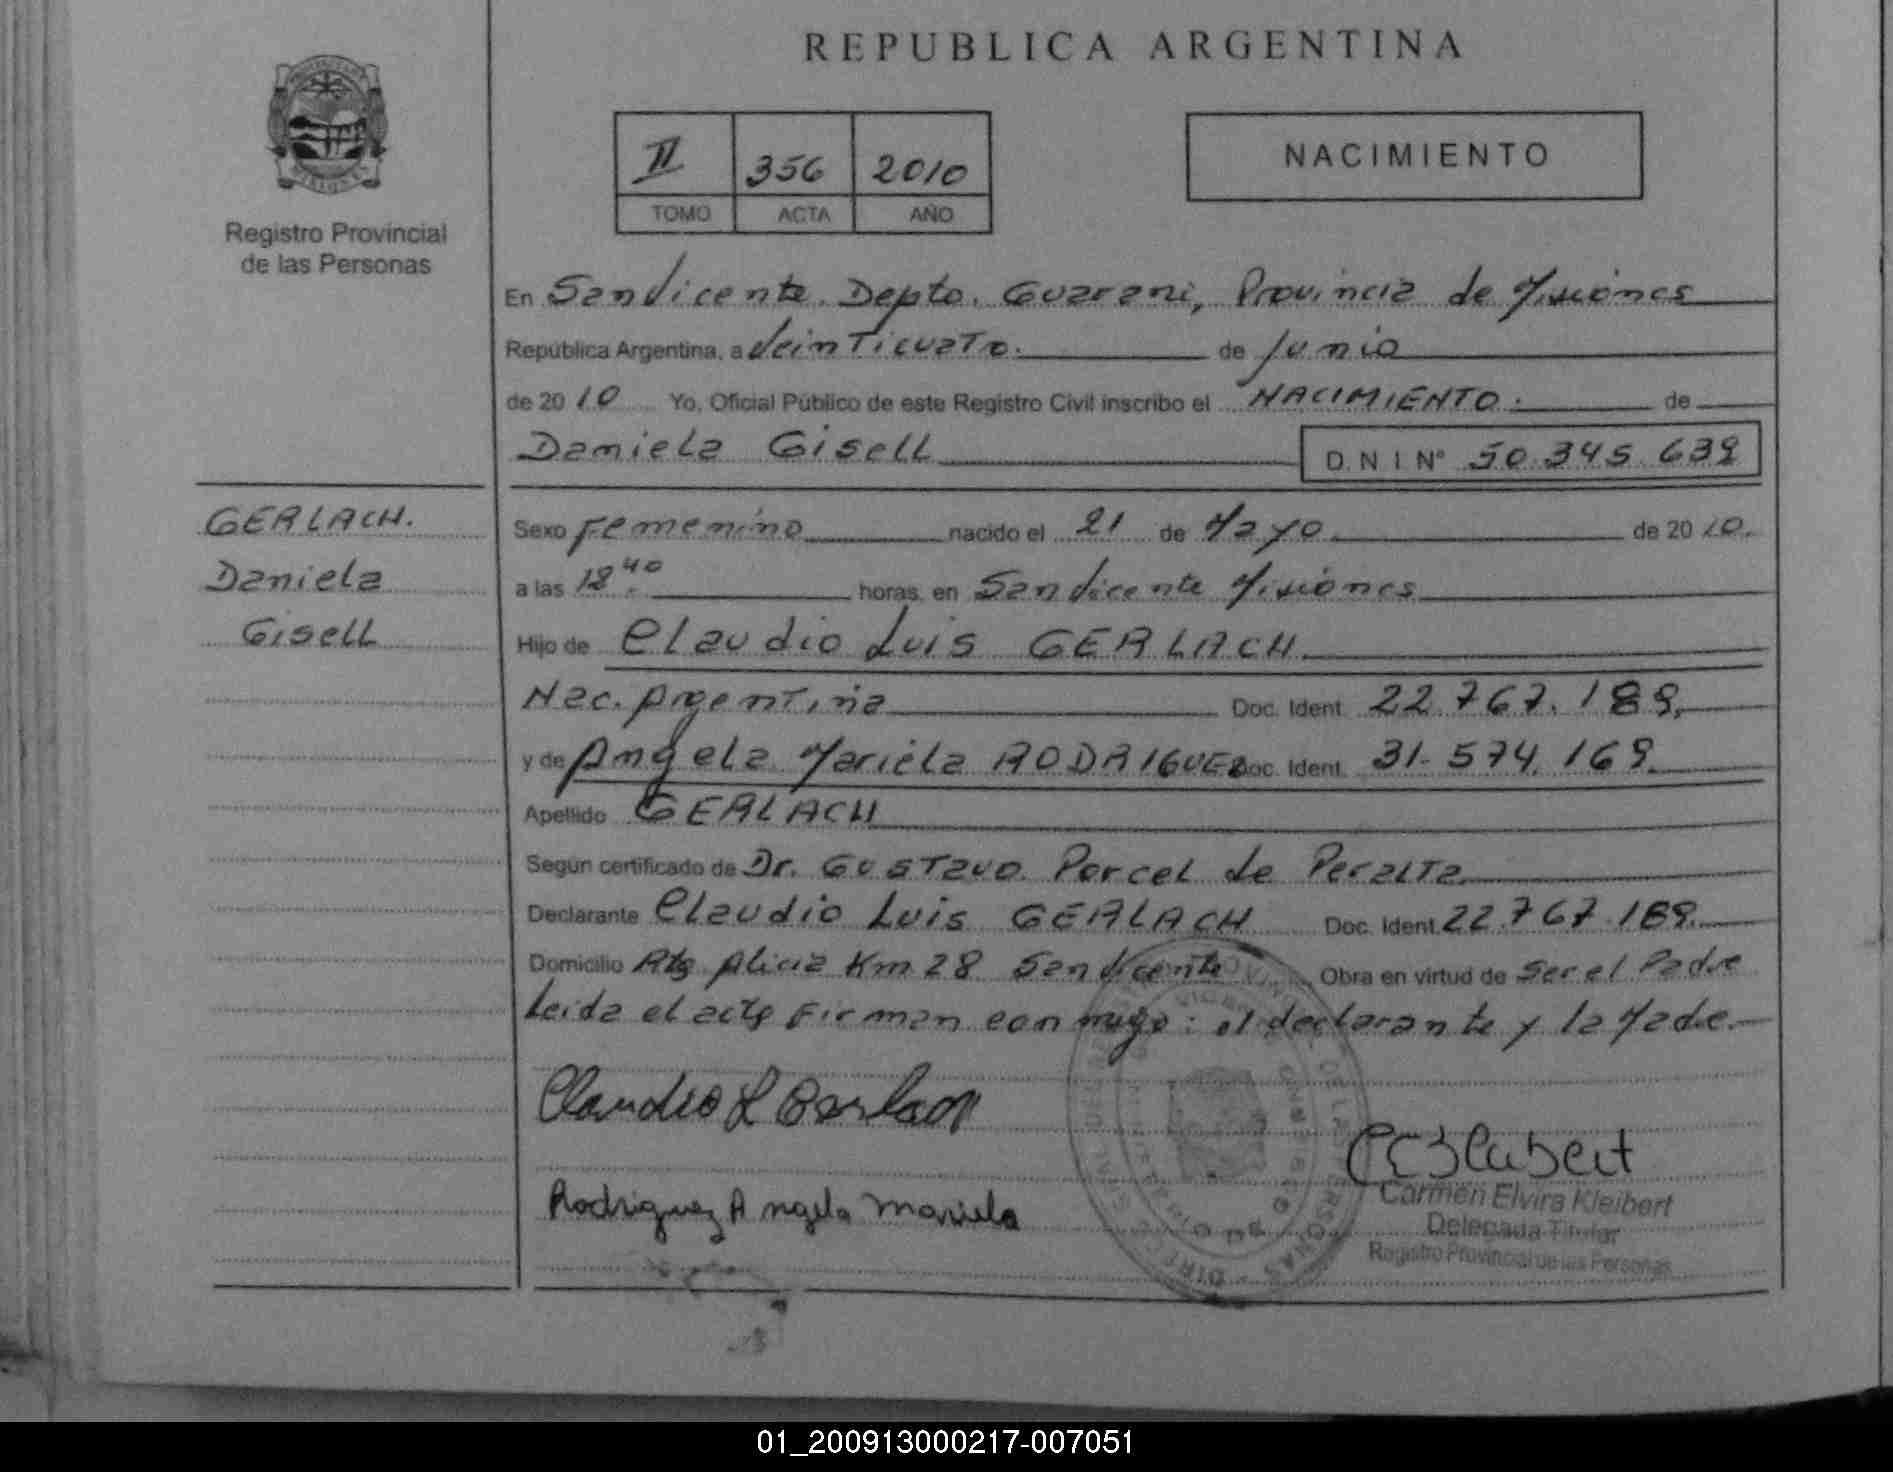 REPUBLICA ARGENTINA
II 356 2010
TOMO ACTA AÑO
NACIMIENTO
Registro Provincial
de las Personas
GERLACH.
Daniela
Gisell
En San Vicente. Depto. Guarani, Provincia de Misiones
República Argentina, a Veinticuatro. de Junio
de 2010 Yo, Oficial Público de este Registro Civil inscribo el NACIMIENTO. de
Daniela Gisell D.N.I Nº 50.345.639
Sexo Femenino nacido el 21 de Mayo de 2010.
a las 18 40 horas, en San Vicente Misiones
Hijo de Claudio Luis GERLACH
Nac. Argentina Doc. Ident. 22.767.189.
y de Angela Mariela RODRIGUEZ Doc. Ident. 31.574.169.
Apellido GERLACH
Según certificado de Dr. GUSTAVO Porcel de Peralta
Declarante Claudio Luis GERLACH Doc. Ident. 22.767.189.
Domicilio Alicia Km 28 San Vicente Obra en virtud de Ser el Padre
Leida el acta Firman conmigo: el declarante y la Madre.
Claudio L Gerlach
Rodriguez Angela Mariela
Carmen Elvira Kleibert
Delegada Titular
Registro Provincial de las Personas
01_200913000217-007051